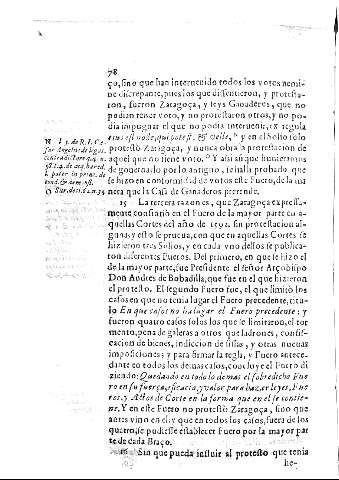 78
ço, sino que han interuenido todos los votos nemi-
ne discrepante, pues los que dissentieron, y protesta-
ron, fueron Zaragoça, y leys Ganaderos, que no
podian tener voto, y no protestaron otros, y no po-
dia impugnar el que no podia interuenir, ex regula
eius est nolle, qui potest, & velle, N y en el Solio solo
protestò Zaragoça, y nunca obra la protestacion de
aquel que no tiene voto. O Y assi aunque huuieramos
de gouernarlo por lo antiguo, se halla probado que
se hizo en conformidad de votos este Fuero, de la ma
nera que la Casa de Ganaderos pretende.
N l. 3. de R. I. C. 2.
O Sur. decis. 62. n. 34
15 La tercera razon es, que Zaragoça expressa-
mente consintiò en el Fuero de la mayor parte en a-
quellas Cortes del año de 1592. sin protestacion al-
guna, y esto se prueua, con que en aquellas Cortes se
hizieron tres Solios, y en cada vno dellos se publica-
ron diferentes Fueros. Del primero, en que se hizo el
de la mayor parte, fue Presidente el señor Arçobispo
Don Andres de Bobadilla, que fue en el que hizieron
el protesto. El segundo Fuero fue, el que limitò los
casos en que no tenia lugar el Fuero precedente, titu-
lo En que casos no ha lugar el Fuero precedente; y
fueron quatro casos solos los que se limitaron, el tor-
mento, pena de galeras a otros que ladrones, confis-
cacion de bienes, indiccion de sissas, y otras nueuas
imposiciones; y para firmar la regla, y Fuero antece-
dente en todos los demas casos, concluye el Fuero di
ziendo: Quedando en todo lo demas el sobredicho Fue
ro en su fuerça, eficacia, y valor para hazer leyes, Fue
ros, y Actos de Corte en la forma que en el se contie-
ne. Y en este Fuero no protestò Zaragoça, sino que
antes vino en el, y que en todos los casos, fuera de los
quatro, se pudiesse establecer Fuero por la mayor par
te de cada Braço.
16 Sin que pueda influir al protesto que tenia
he-